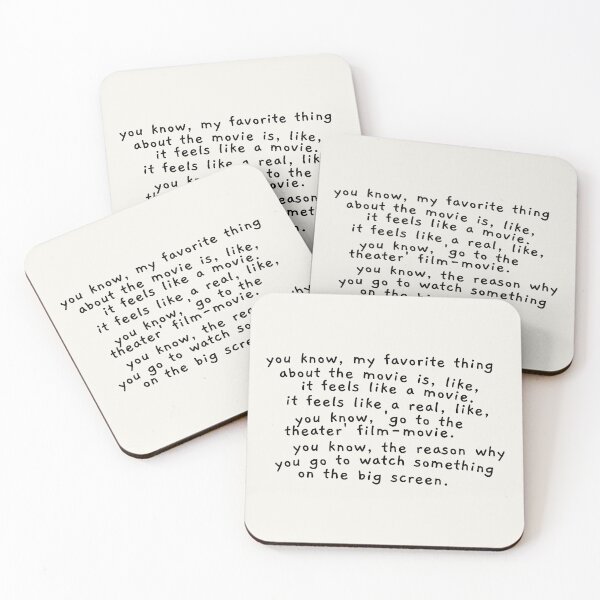 you know, my favorite thing
about the movie is, like,
it feels like a movie.
it feels like a real,
you to the
reason
you know, my favorite thing
about the movie is, like,
it feels like a movie.
it feels like a real, like,
you know, 'go to the
theater' film-movie.
you know, the reason why
you go to watch something
on the
you know, my favorite thing
about the movie is, like,
it feels like a movie.
it feels like a real, like,
you know, 'go to the
theater' film-movie.
you know, the reason why
you go to watch
on the big
you know, my favorite thing
about the movie is, like,
it feels like a movie.
it feels like a real, like,
you know, 'go to the
theater' film-movie.
you know, the reason why
you go to watch something
on the big screen.